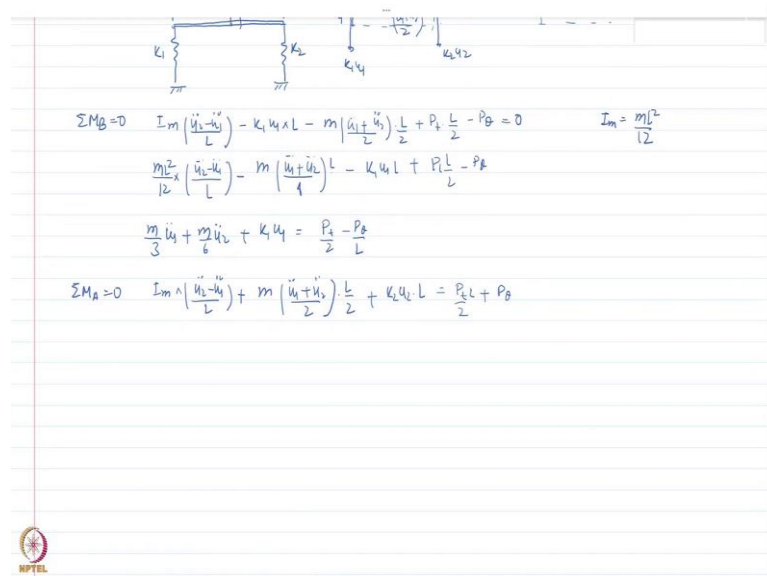 K₁ K₂ K₁u₁ K₂u₂
ΣM_B=0 I_m (ü₂-ü₁/L) - K₁u₁×L - m(ü₁+ü₂/2)·L/2 + P_t·L/2 - P_θ = 0 I_m = mL²/12
mL²/12 × (ü₂-ü₁/L) - m(ü₁+ü₂/4)L - K₁u₁L + P_t L/2 - P_θ
m/3 ü₁ + m/6 ü₂ + K₁u₁ = P_t/2 - P_θ/L
ΣM_A=0 I_m × (ü₂-ü₁/L) + m(ü₁+ü₂/2)·L/2 + K₂u₂·L = P_t L/2 + P_θ
NPTEL